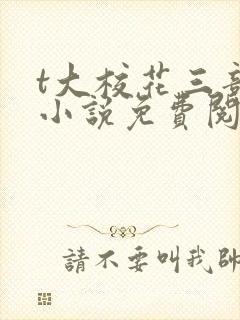 t大校花三部
小説免費閱
請不要叫我帥